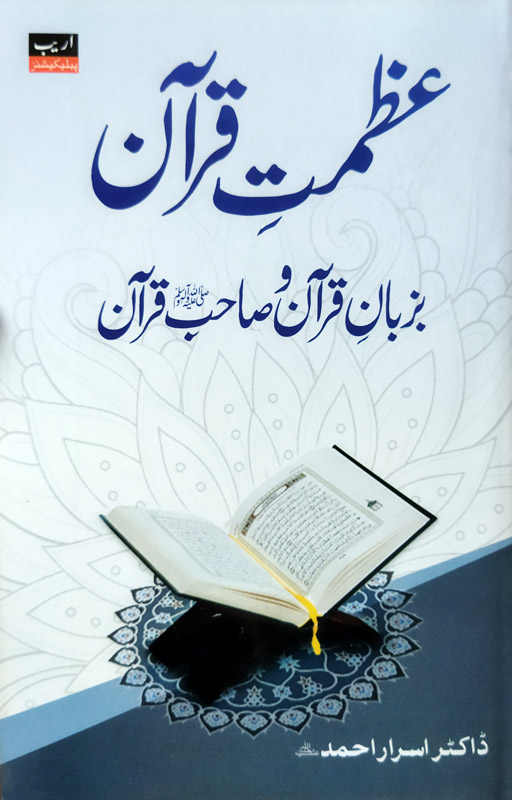 اریب
پبلیکیشنز
عظمتِ قرآن
بزبانِ قرآن و صاحبِ قرآن ﷺ
ڈاکٹر اسرار احمد